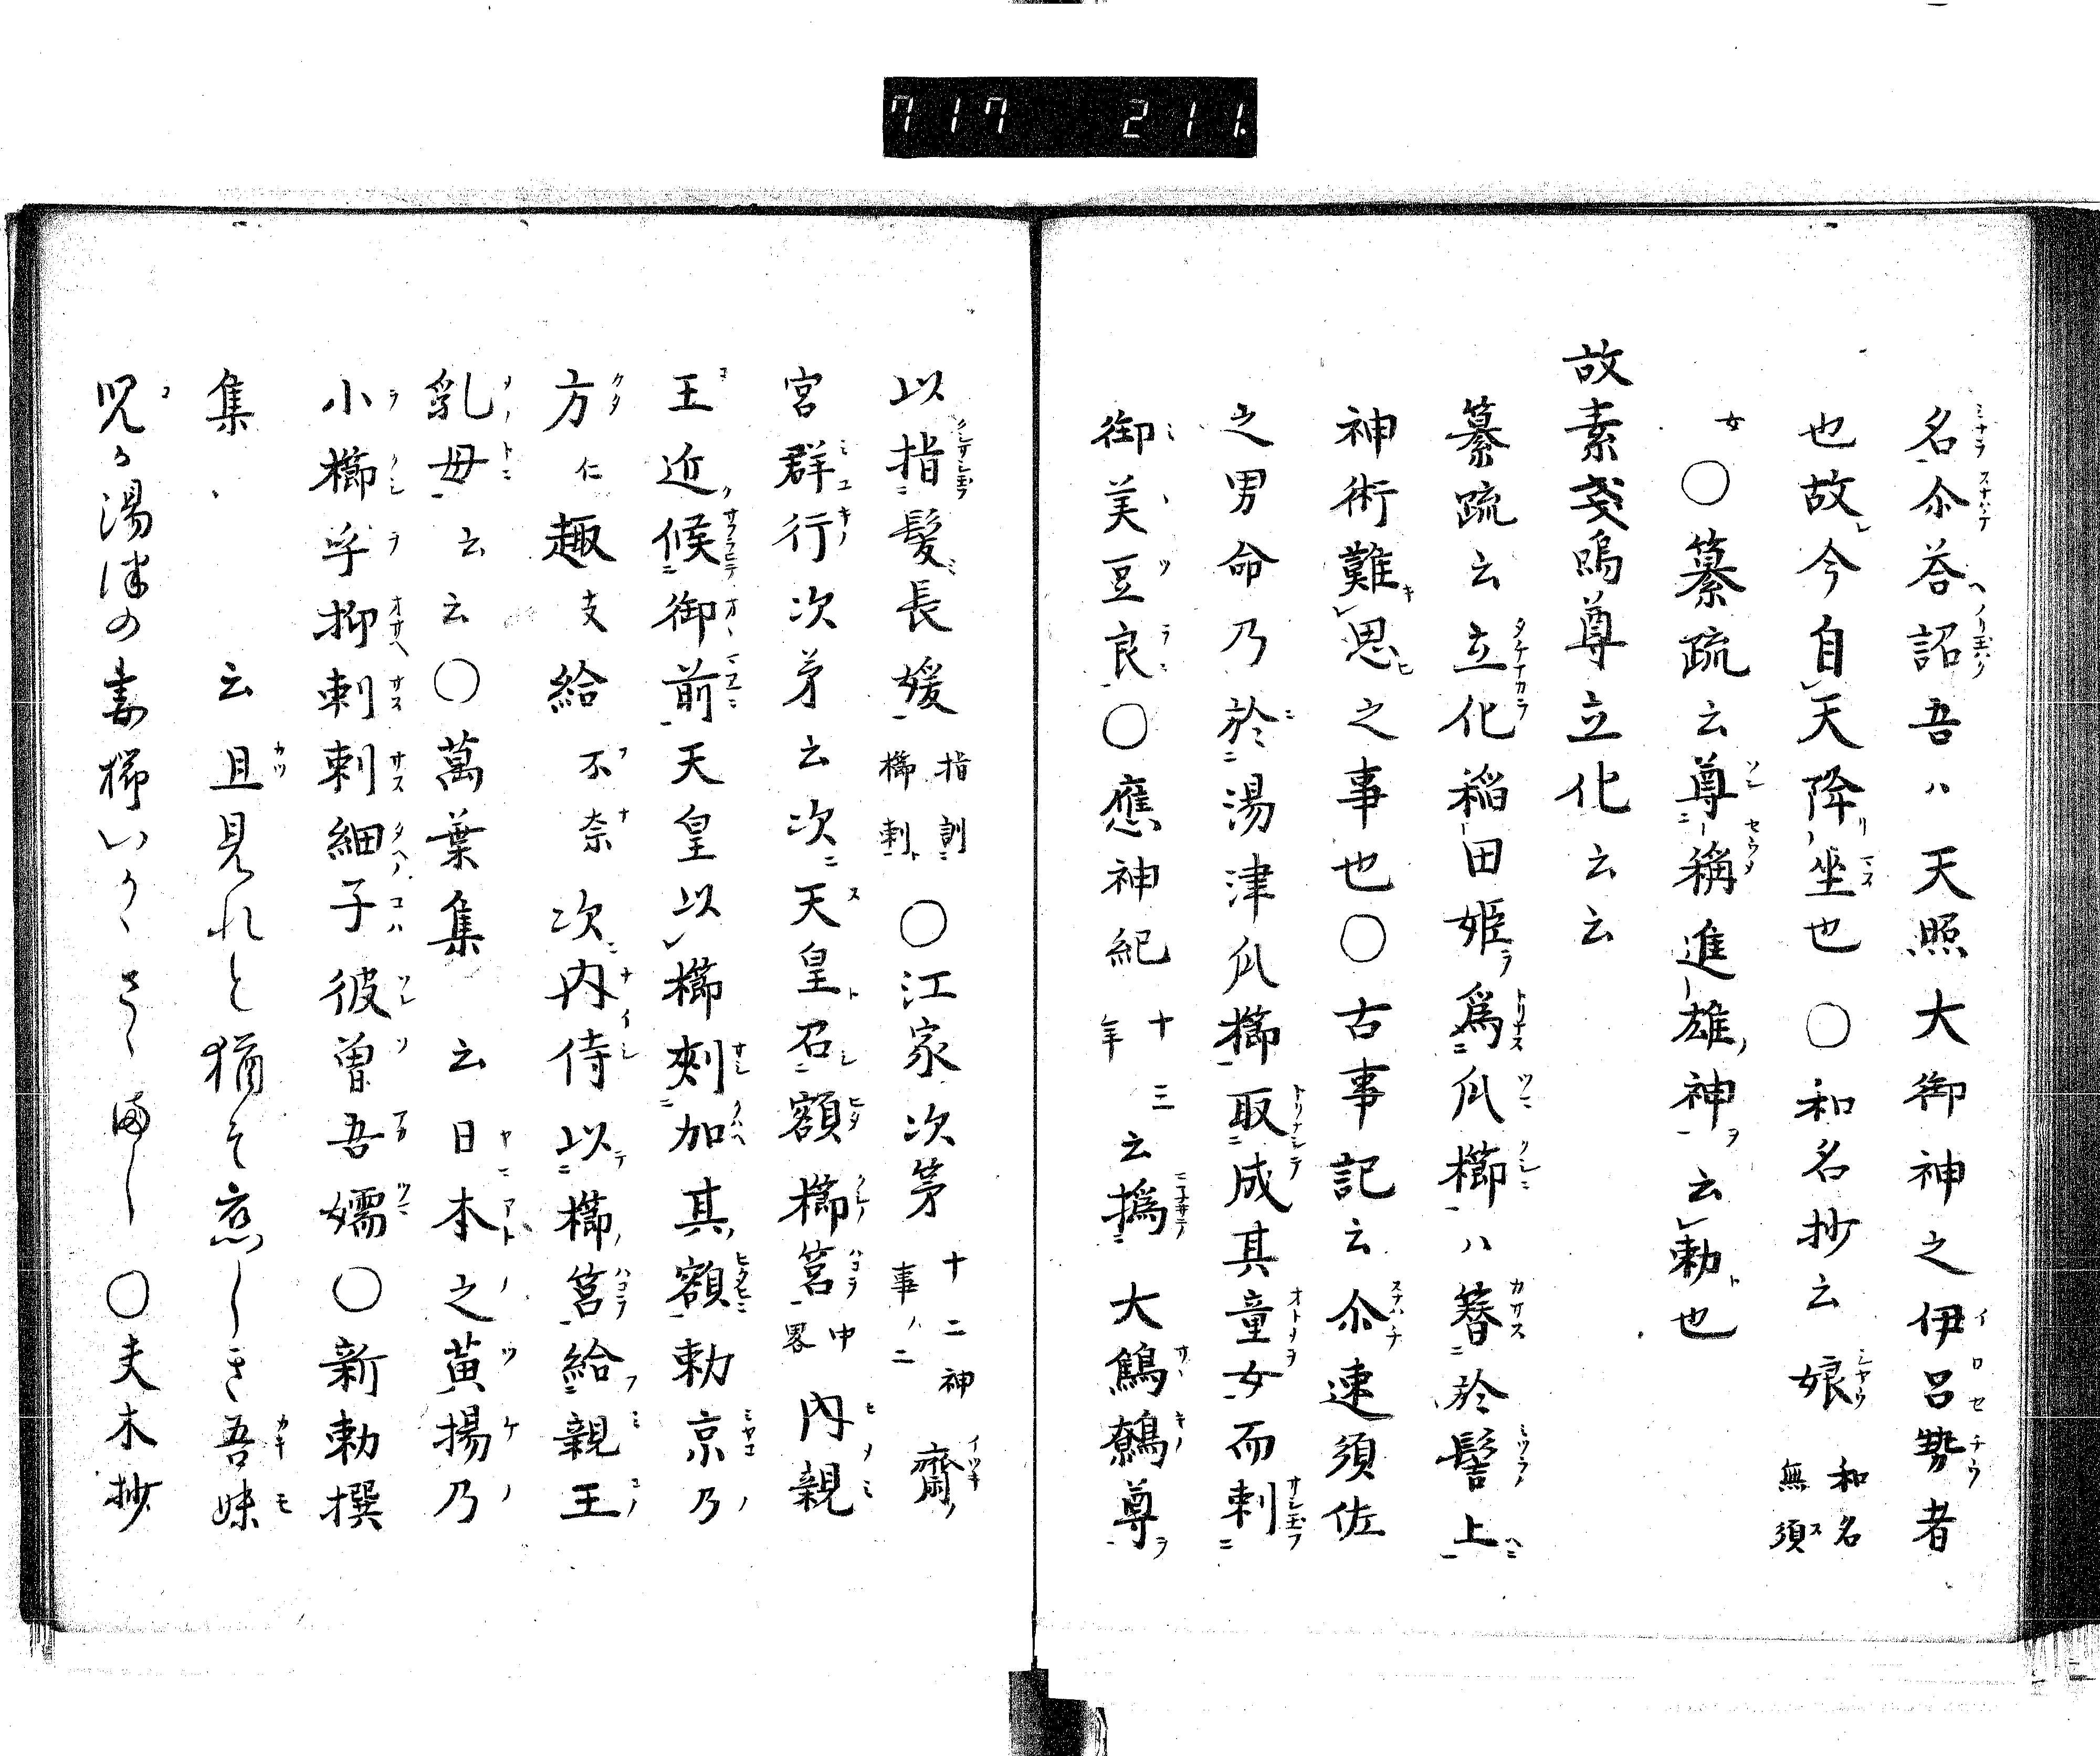 717 211
名尒荅詔吾ハ天照大御神之伊呂勢者
也故今自天降坐也〇和名抄云娘和名無須
女〇纂疏云尊稱進雄神云勅也
故素戔嗚尊立化云云
纂疏云立化稲田姫爲爪櫛ハ簪於髻上
神術難思之事也〇古事記云尒速須佐
之男命乃於湯津爪櫛取成其童女而刺
御美豆良〇應神紀十三年云撝大鷦鷯尊
以指髪長媛指訓櫛刺〇江家次苐十二神事ノ二齋
宮群行次苐云次天皇召額櫛筥中畧內親
王近候御前天皇以櫛刺加其額勅京乃
方仁趣支給不奈次内侍以櫛筥給親王
乳母云云〇萬葉集云日本之黄楊乃
小櫛乎抑刺刺細子彼曽吾嬬〇新勅撰
集云且見れと猶そ恋しき吾妹
児か湯津の妻櫛いかゝさゝまし〇夫木抄